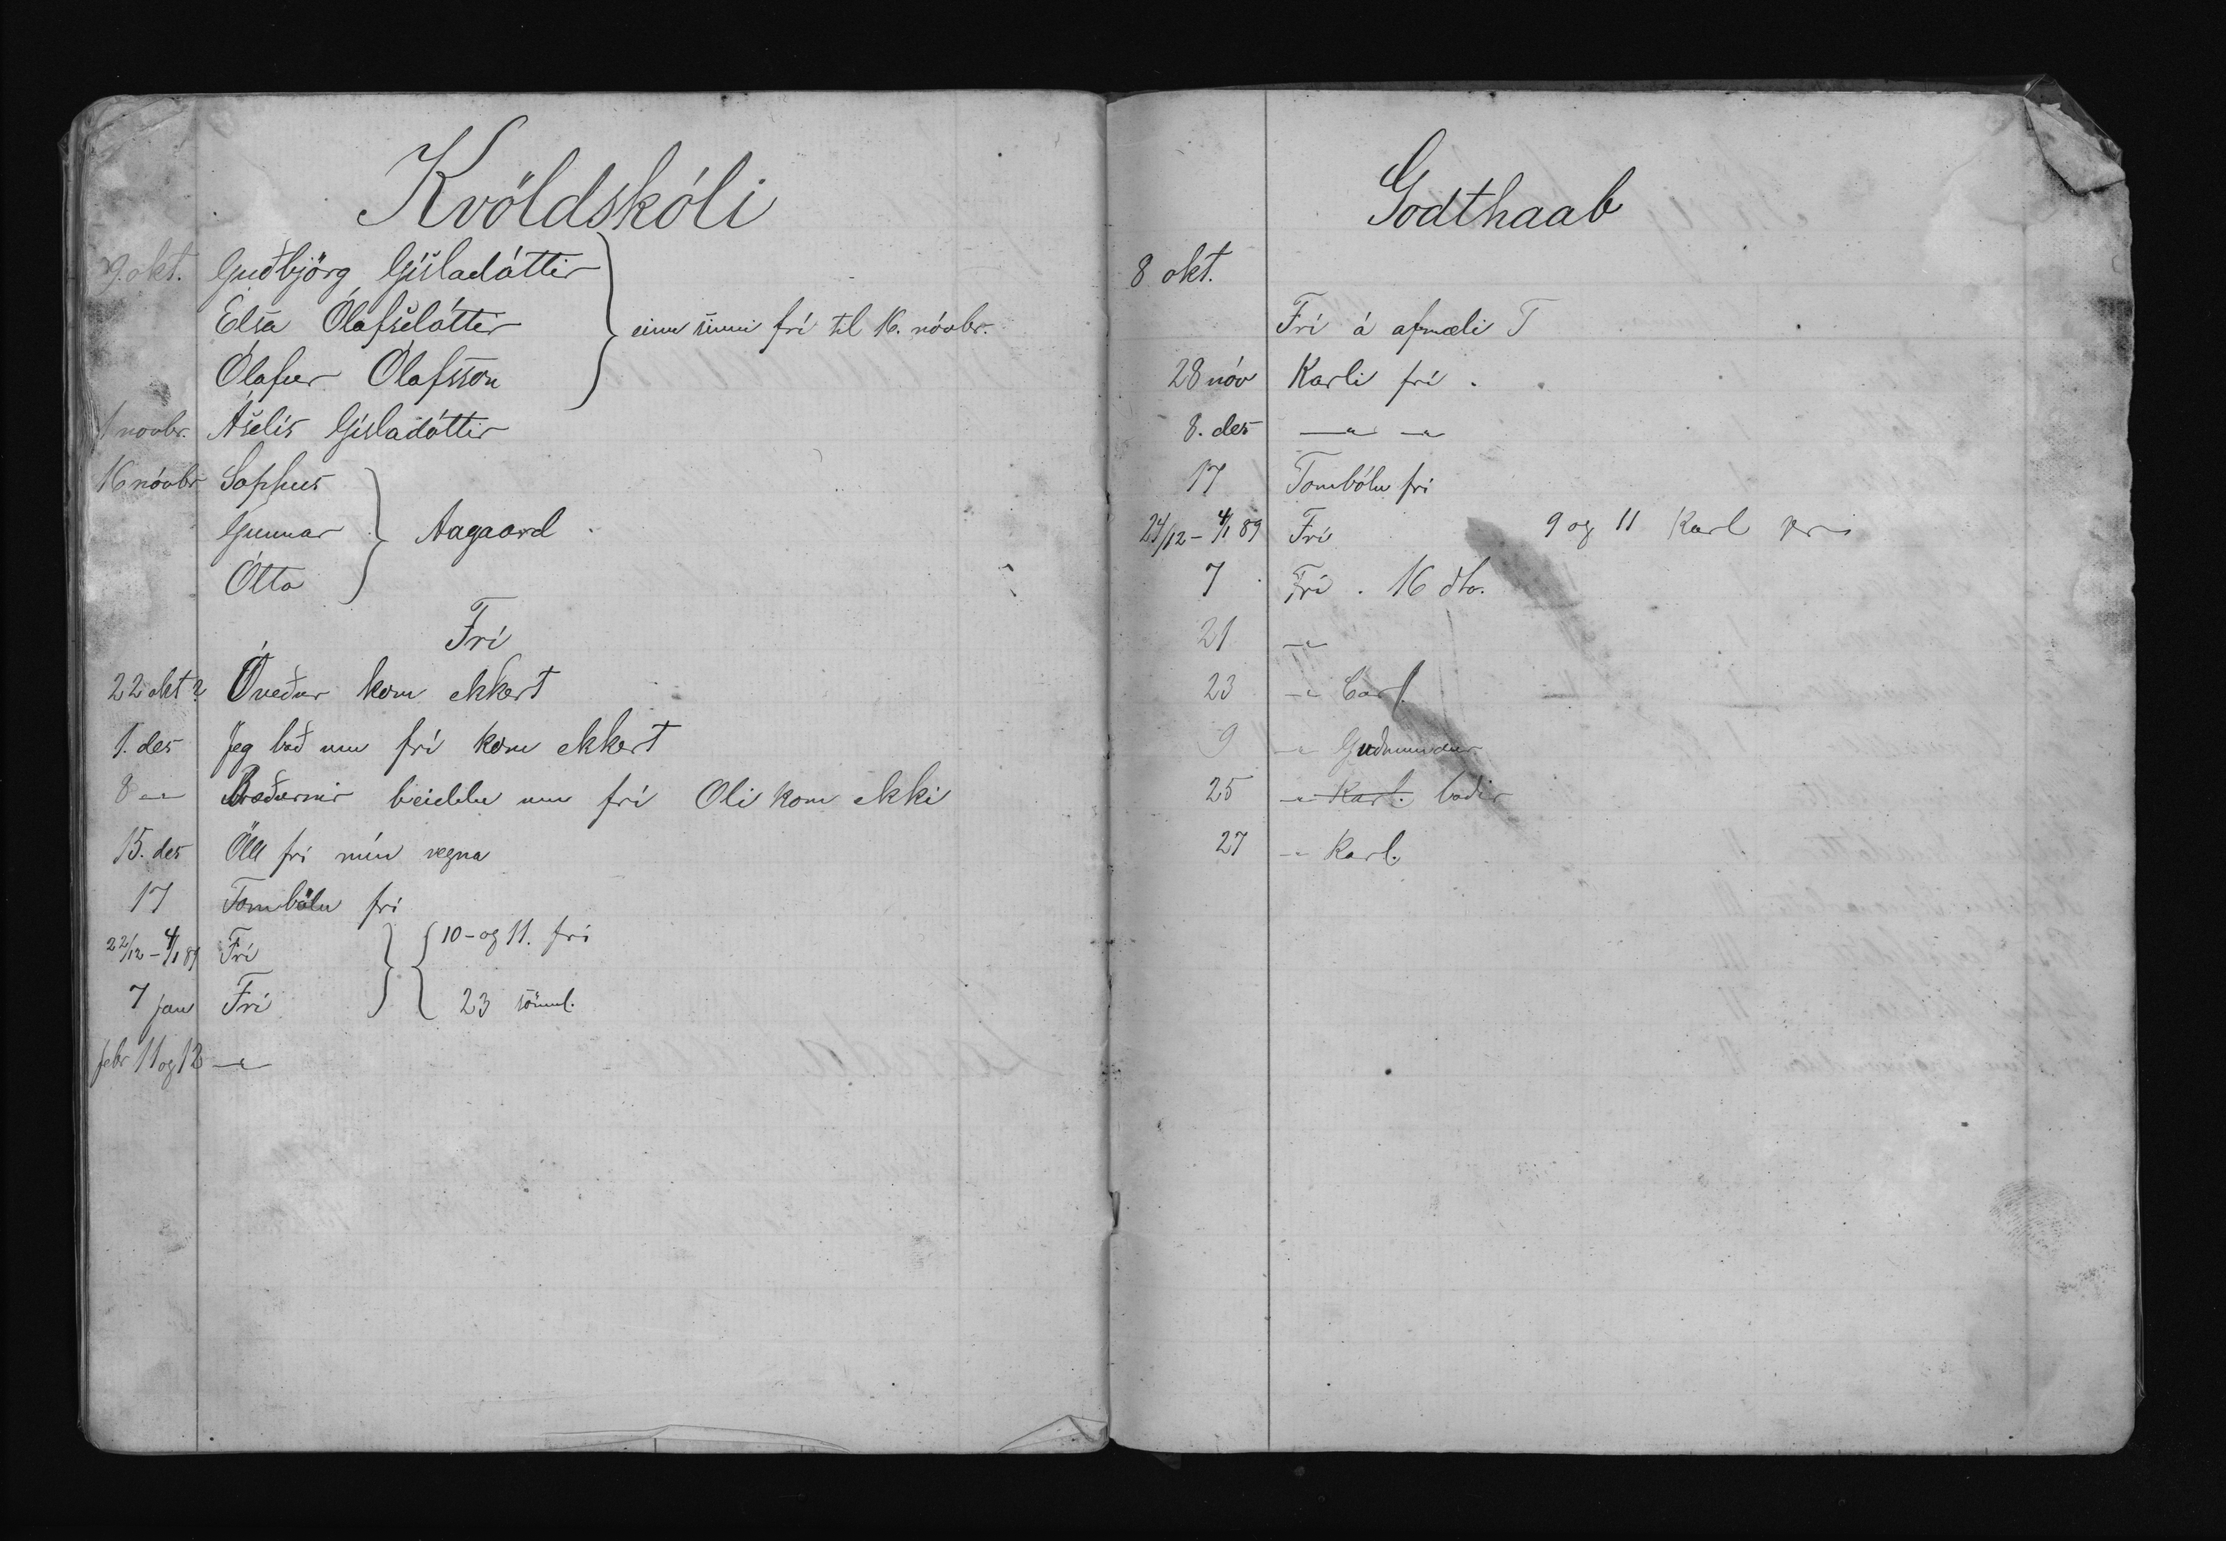 Kvöldskóli
9. okt. Guðbjörg Gísladóttir
Elsa Ólafsdóttir } einu sinni frí til 16. nóvbr.
Ólafur Ólafsson
1 novbr. Ásdís Gísladóttir
16 nóvbr Sophus
Gunnar } Aagaard
Ótto
Frí
22 okt? Óveður kom ekkert
1. des Jeg bað um frí kom ekkert
8 -"- Bræðurnir beiddu um frí Oli kom ekki
15. des Öll frí mín vegna
17 Tombólu frí
22/12 - 4/1 89 Frí } { 10 - og 11. frí
7 jan Frí 23 söml.
febr 11 og 12 -"-
Godthaab
8 okt.
Frí á afmæli T
28 nóv Karli frí.
8. des -"- -"-
17 Tombólu frí
24/12 - 4/1 89 Frí 9 og 11 Karl
7 Frí. 16 dto.
21 -"-
23 -"- Carl.
9 -"- Guðmundur
25 -"- Karl. báðir
27 -"- Karl.